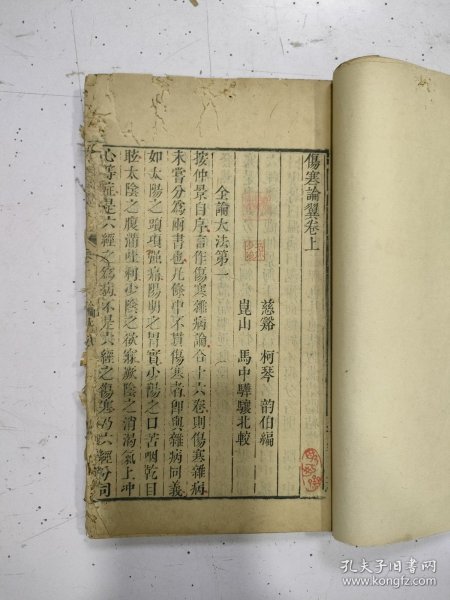 傷寒論翼卷上
慈谿 柯琴 韵伯編
崑山 馬中驊驤北較
全論大法第一
按仲景自序言作傷寒雜病論合十六卷則傷寒雜病
未嘗分為兩書也凡條中不貫傷寒者即與雜病同義
如太陽之頭項强痛陽明之胃實少陽之口苦咽乾目
眩太陰之腹滿吐利少陰之欲寐厥陰之消渴氣上冲
心等症是六經之為病不是六經之傷寒乃六經分司
孔夫子旧书网
www.kongfz.com